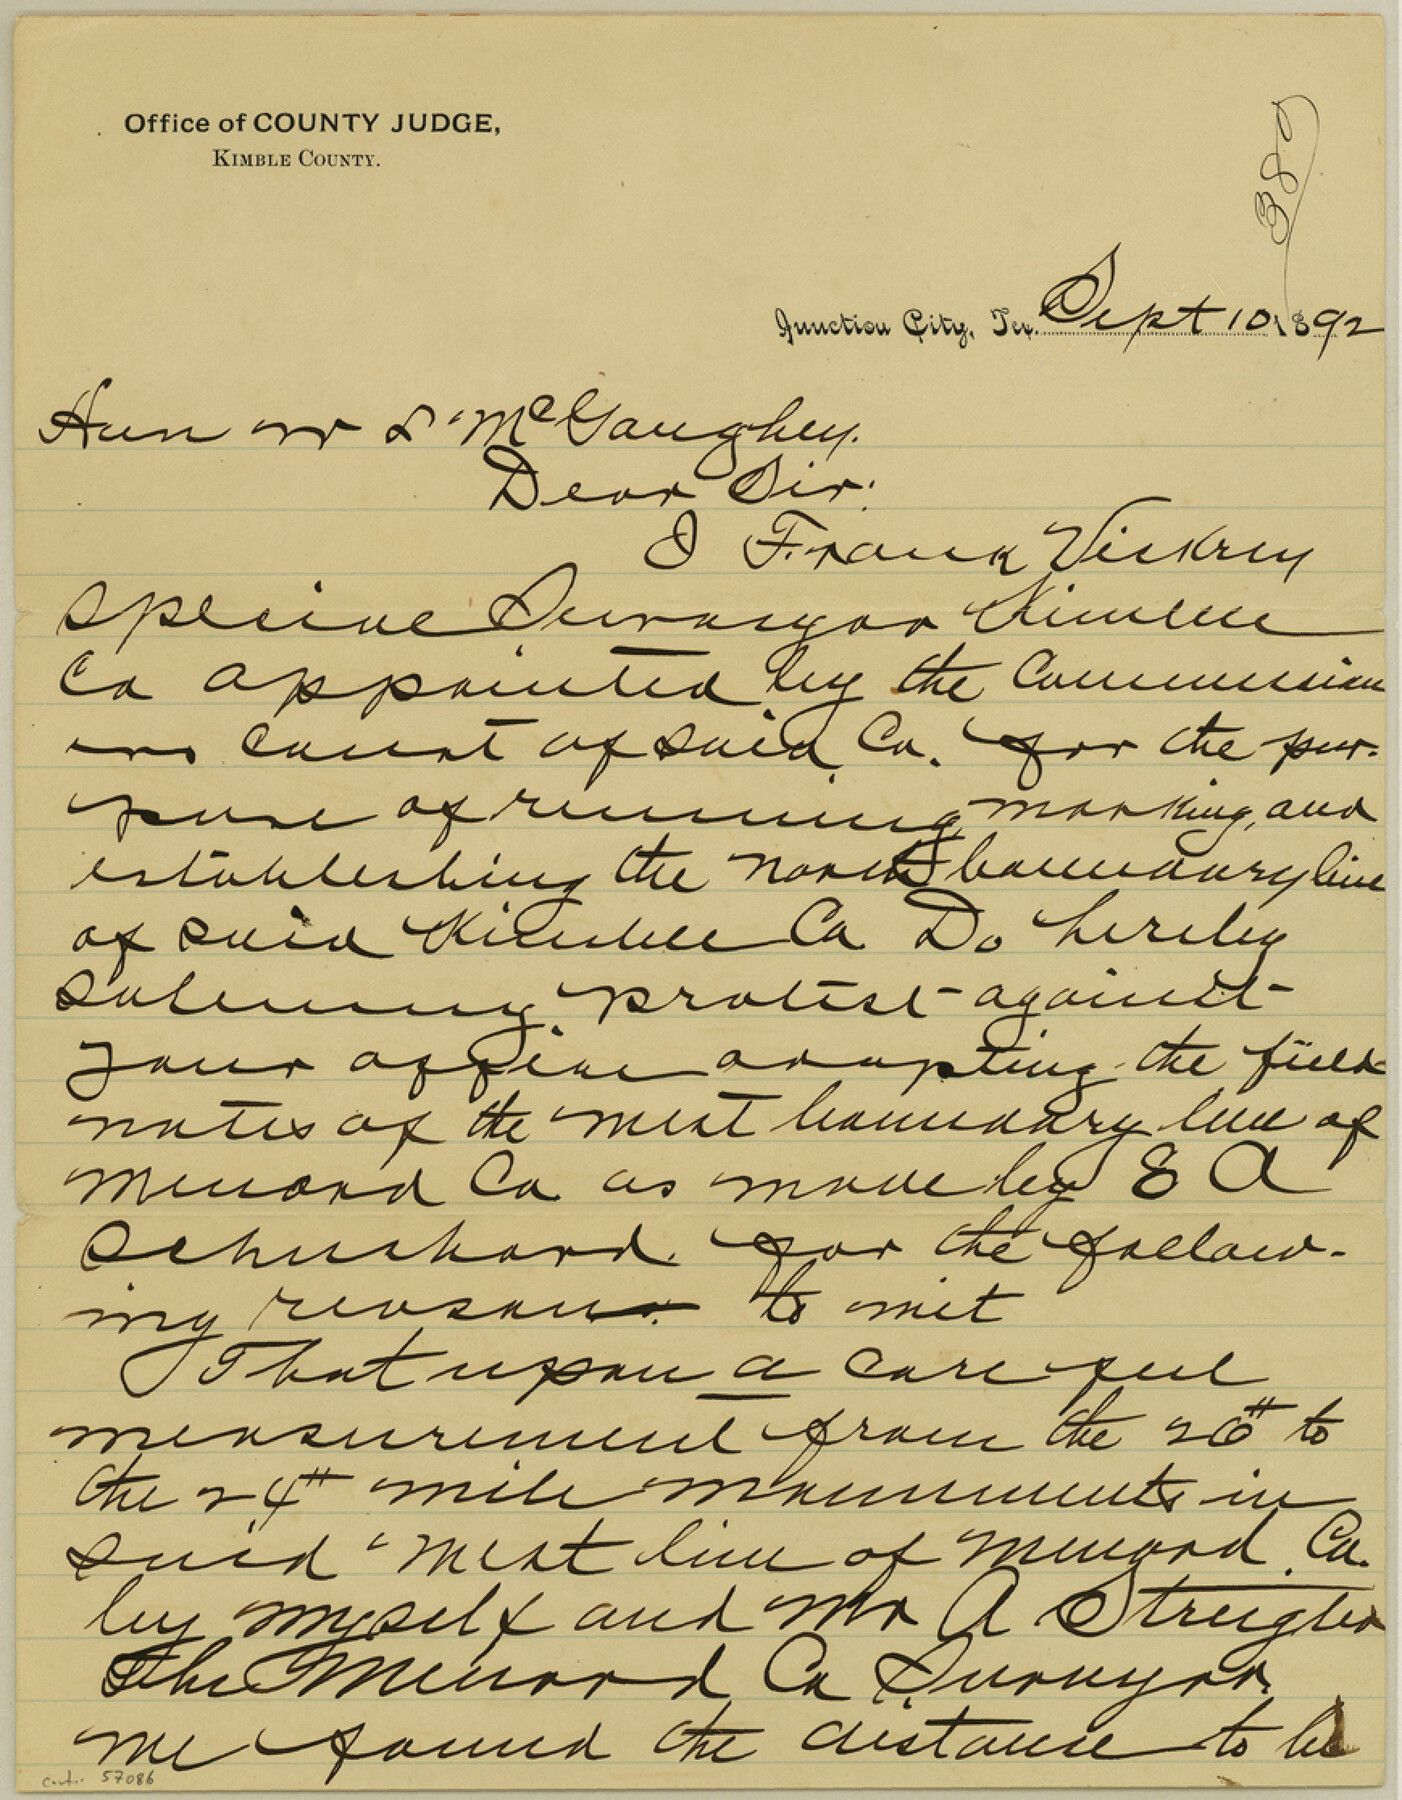 Office of COUNTY JUDGE,
KIMBLE COUNTY.
389
Junction City, Tex. Sept 10 1892
Hon W L McGaughey.
Dear Sir:
I Frank Vickrey
special Surveyor Kimble
Co appointed by the Commission
ers Court of said Co. for the pur-
pose of running, marking, and
establishing the north boundary line
of said Kimble Co Do hereby
solemny protest against
your office adopting the field
notes of the west boundary line of
Menard Co as made by E A
Schuchard. for the follow-
ing reasons. to wit
That upon a care ful
measurement from the 26th to
the 24th mile monuments in
said West line of Menard Co.
by myself and Mr A Streigler
The Menard Co Surveyor.
we found the distance to be
57086